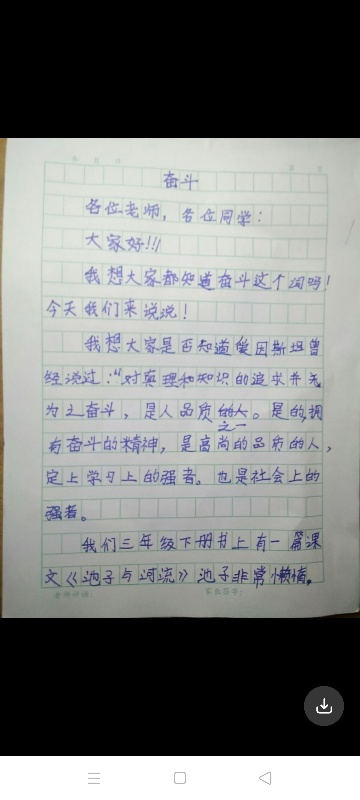 奋斗
各位老师，各位同学：
大家好!!!
我想大家都知道奋斗这个词吗!
今天我们来说说!
我想大家是否知道爱因斯坦曾
经说过："对真理和知识的追求并无
为之奋斗，是人品质的人。是的,拥
之一
有奋斗的精神，是高尚的品质的人，
定上学习上的强者。也是社会上的
强者。
我们三年级下册书上有一篇课
文《池子与河流》池子非常懒惰。
老师评语:
家长签字: